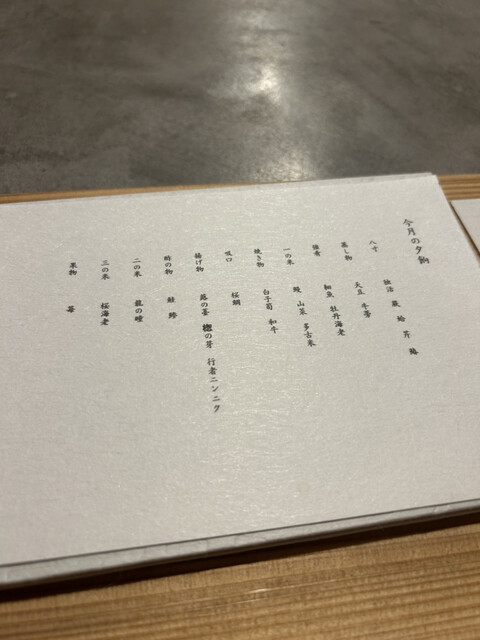 今月の夕餉
八寸 独活 蕨 蛤 芹
蒸し物 大豆 牛蒡
強肴 細魚 牡丹海老
一の米 鰻 山菜 多古米
焼き物 白子筍 和牛
吸口 桜鯛
揚げ物 蕗の薹 楤の芽 行者ニンニク
酢の物 鮭
二の米 龍の瞳
三の米 桜海老
果物 苺